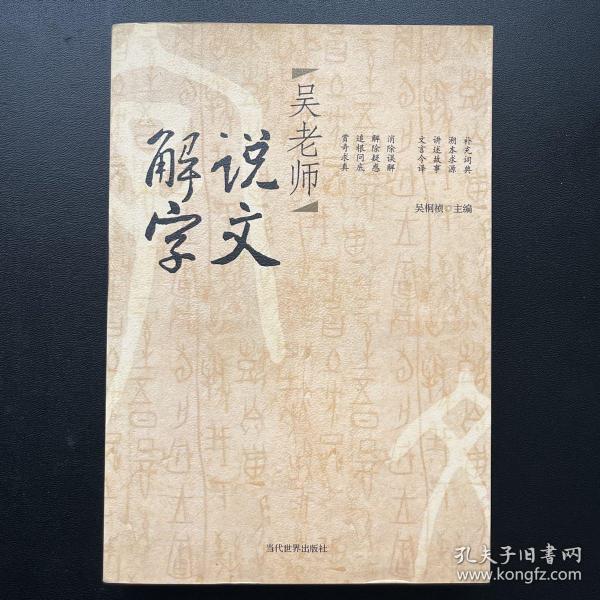 吴老师
说文
解字
补充词典
溯本求源
讲述故事
文言今译
消除误解
解除疑惑
追根问底
赏奇求真
吴桐祯◎主编
当代世界出版社
孔夫子旧书网
www.kongfz.com